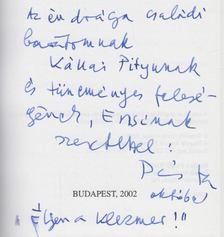 Az én drága családi
barátomnak
Kállai Pityunak
és tüneményes felesé-
gének, Encsának
szeretettel:
BUDAPEST, 2002
október
Éljen a klezmer!"